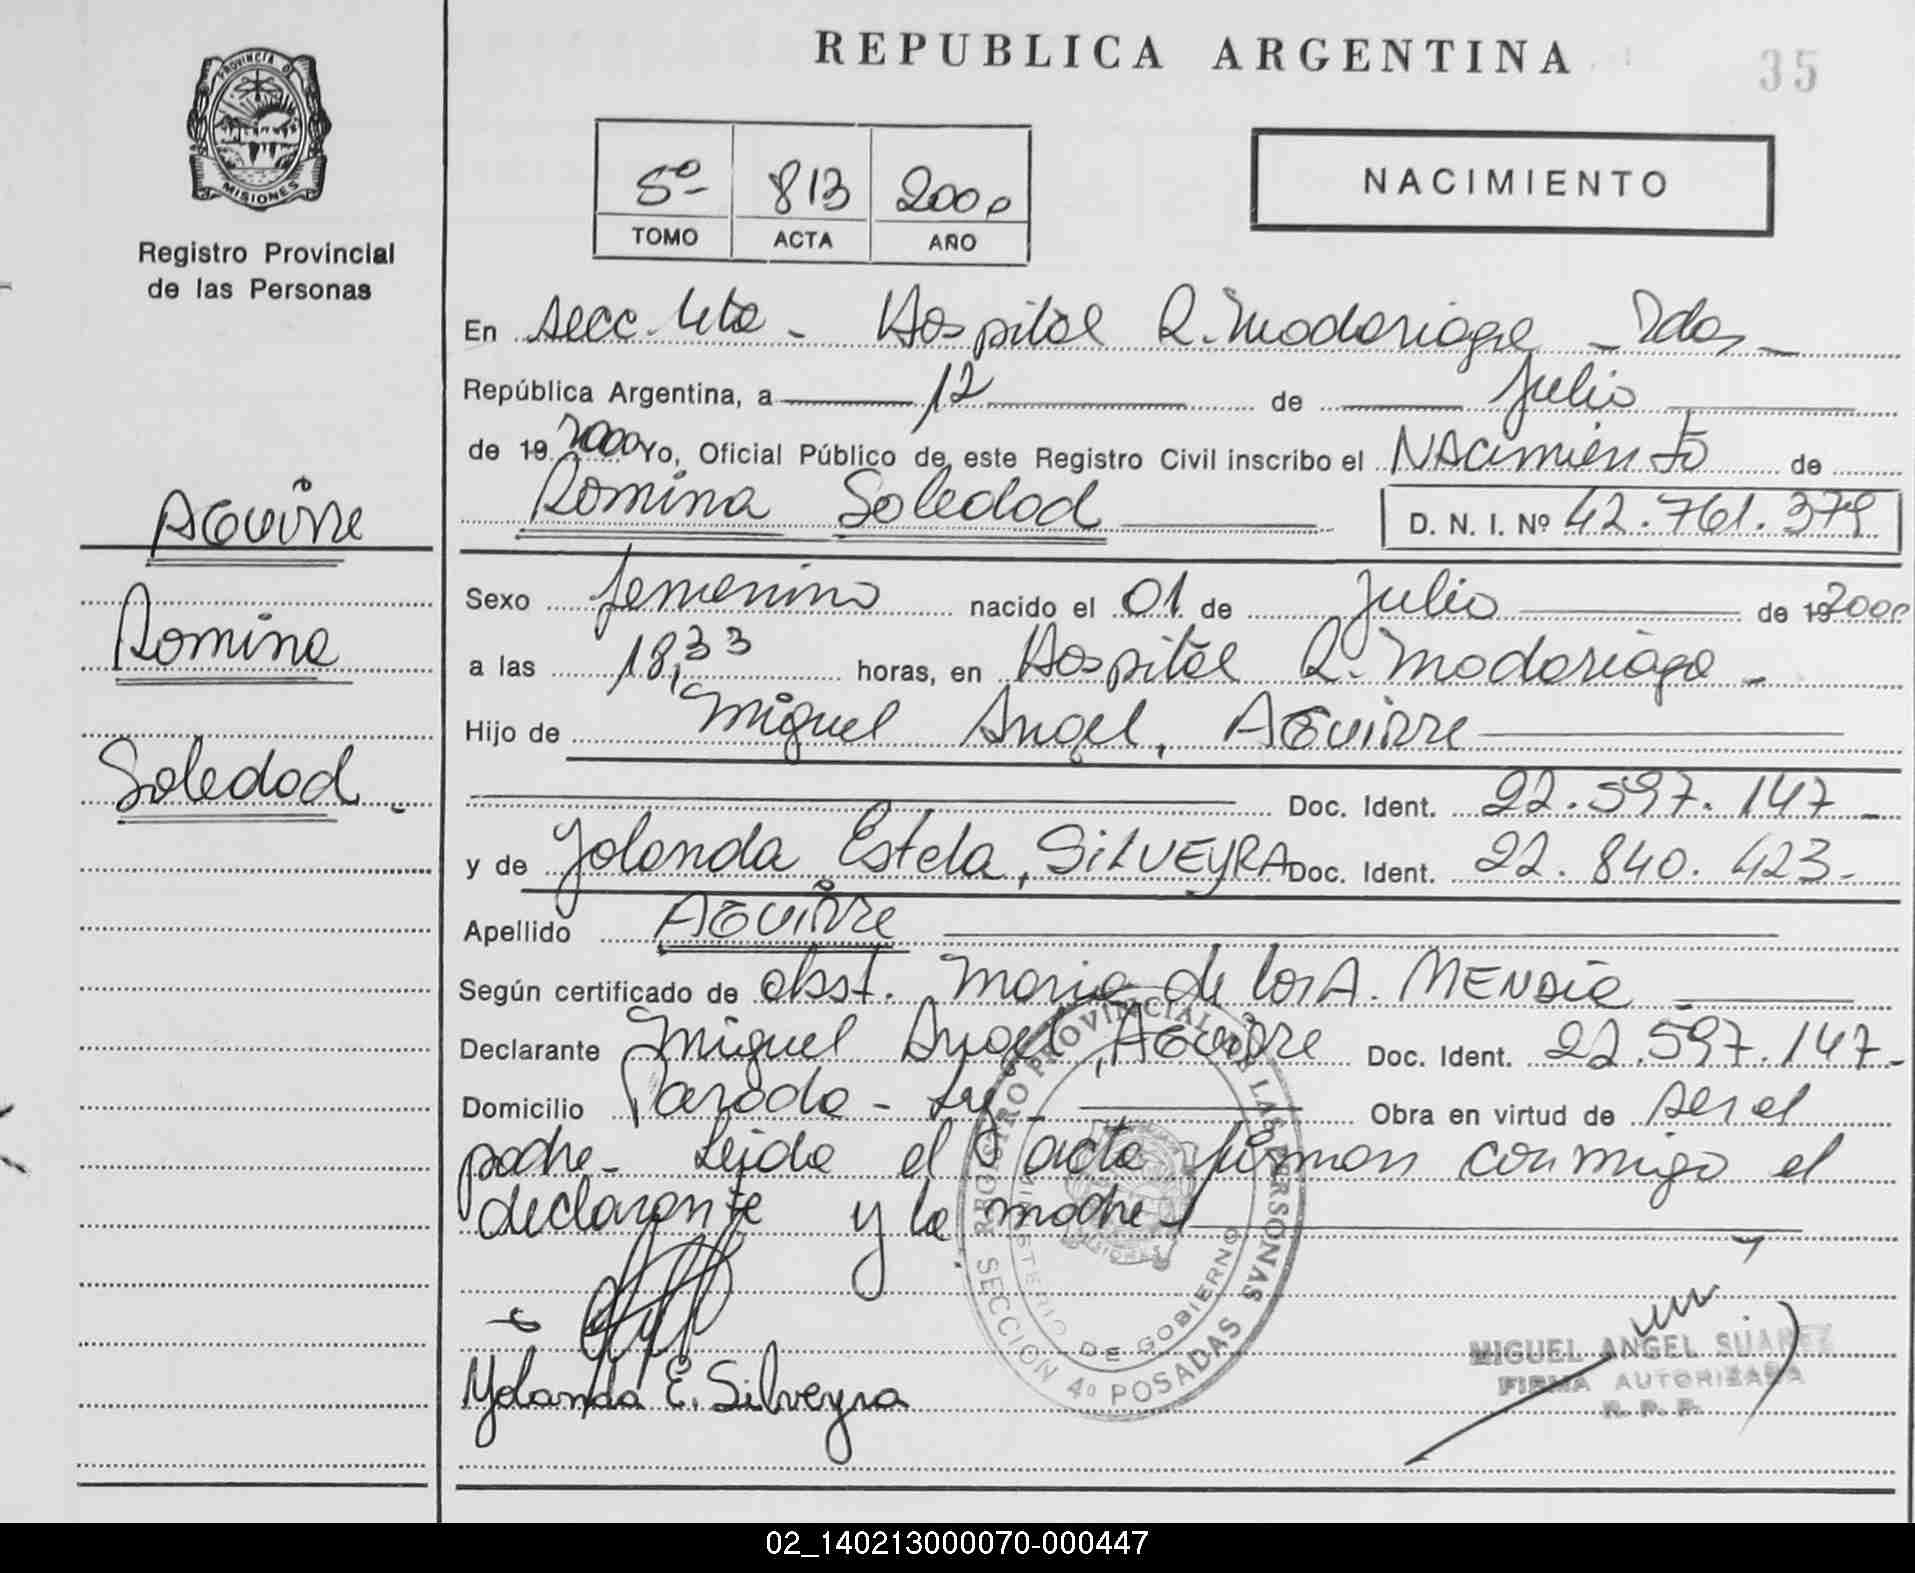 REPUBLICA ARGENTINA
35
PROVINCIA DE
MISIONES
Registro Provincial
de las Personas
5º- 813 2000
TOMO ACTA AÑO
NACIMIENTO
En Secc. 4ta - Hospital R. Madariaga - Pdas -
República Argentina, a 12 de Julio
de 19 2000 Yo, Oficial Público de este Registro Civil inscribo el NAcimiento de
Romina Soledad D. N. I. Nº 42.761.379
AGuirre
Romina
Soledad.
Sexo femenino nacido el 01 de Julio de 19 2000
a las 18,33 horas, en Hospital R. Madariaga -
Hijo de Miguel Angel, AGuirre
Doc. Ident. 22.597.147 -
y de Yolanda Estela, SiLVEYRA Doc. Ident. 22.840.423-
Apellido AGuirre
Según certificado de obst. Maria de los A. MENDiE
Declarante Miguel Angel, AGuirre Doc. Ident. 22.597.147-
Domicilio Obra en virtud de ser el
padre- Leida el acta firman conmigo el
declarante y la madre
REGISTRO PROVINCIAL DE LAS PERSONAS
MINISTERIO DE GOBIERNO
MISIONES
SECCION 4º POSADAS
Yolanda E. Silveyra
MIGUEL ANGEL SUAREZ
FIRMA AUTORIZADA
R. P. P.
02_140213000070-000447